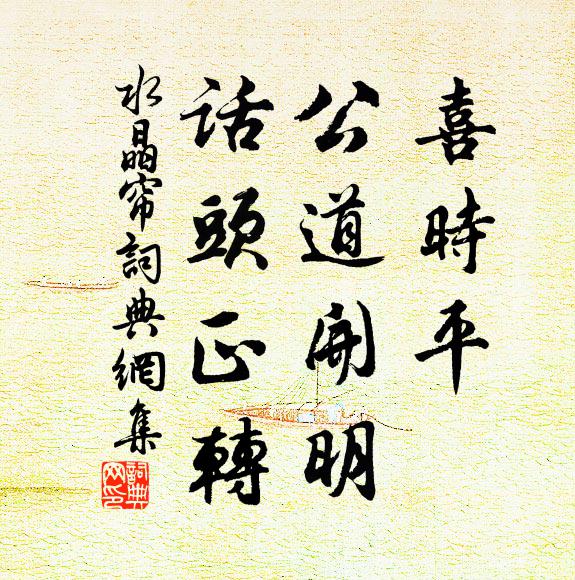 喜時平
公道開明
话頭正轉
水晶帘詞典網集
詞典网印